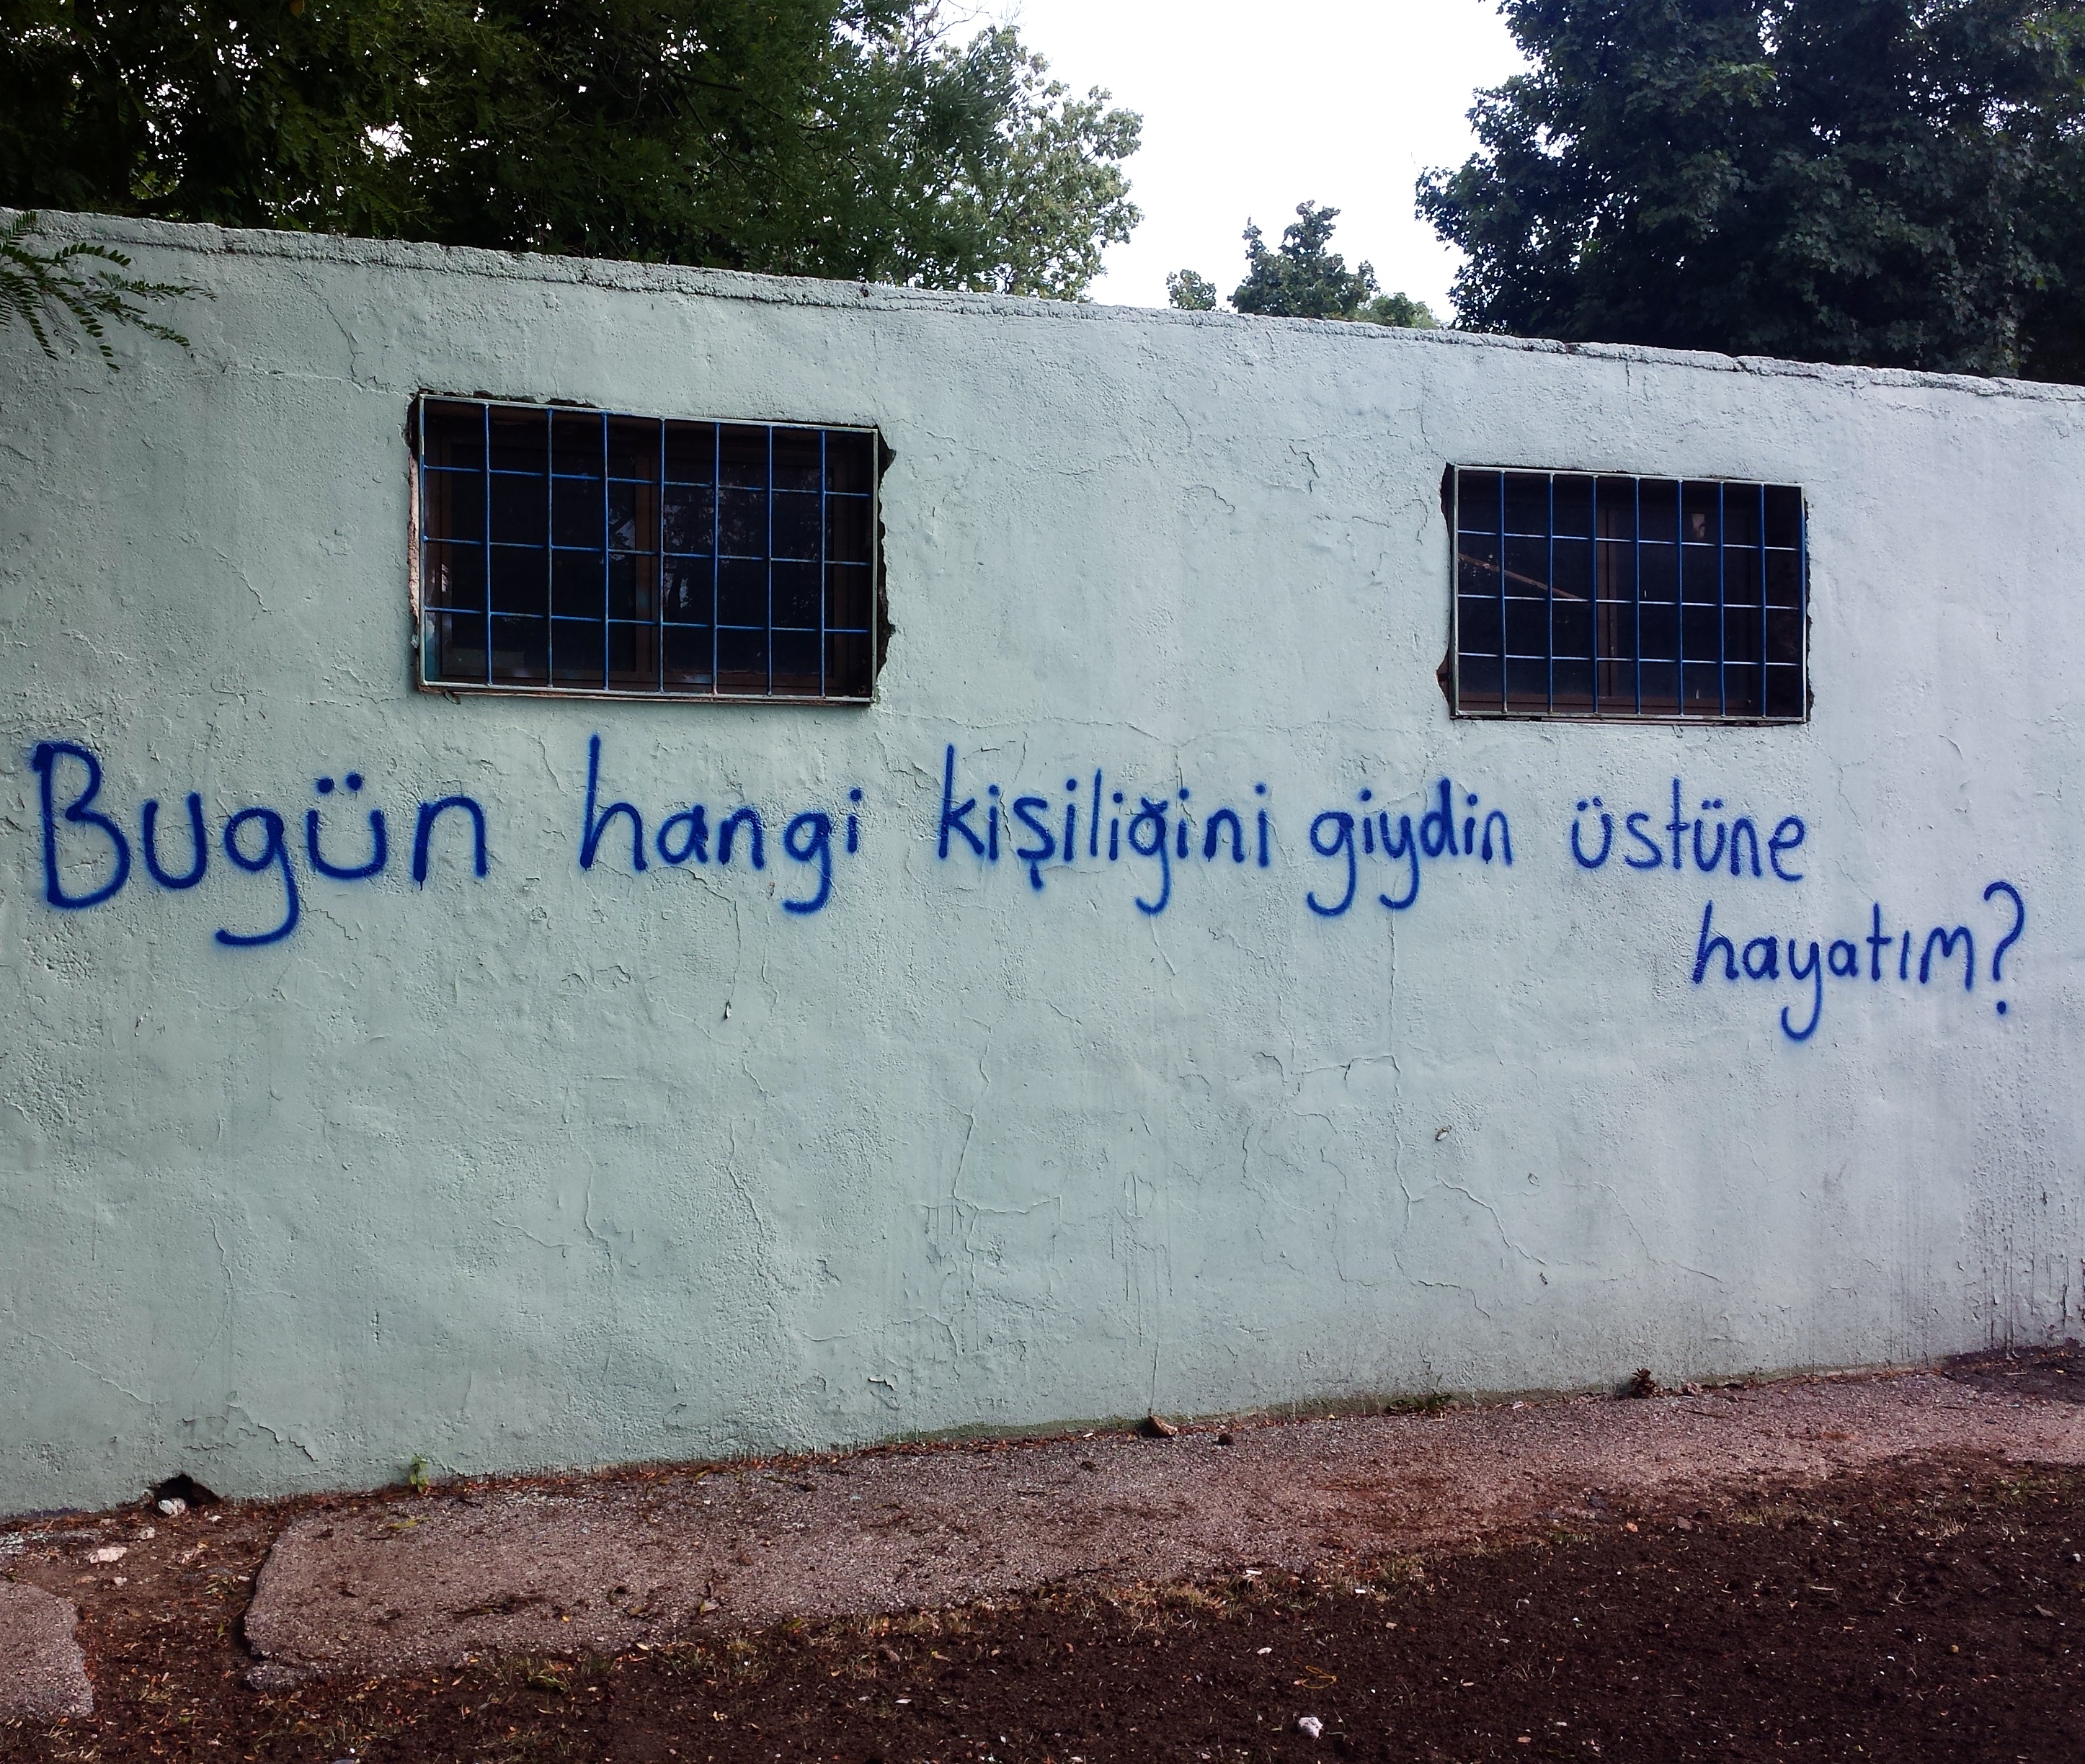 Bugün hangi kişiliğini giydin üstüne
hayatım?